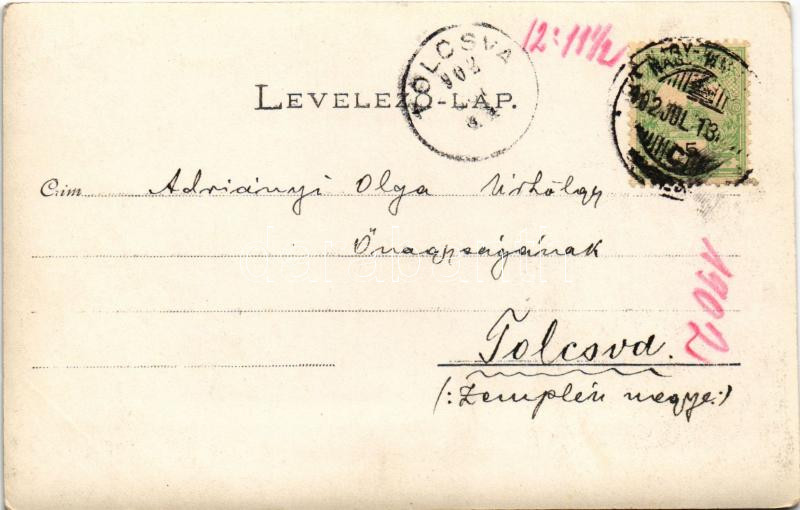 12: 11½
TOLCSVA
902
902 JUL. 13.
5
LEVELEZŐ-LAP.
Czim Adriányi Olga Úrhölgy
Őnagyságának
1902
Tolcsva.
(: Zemplén megye :)